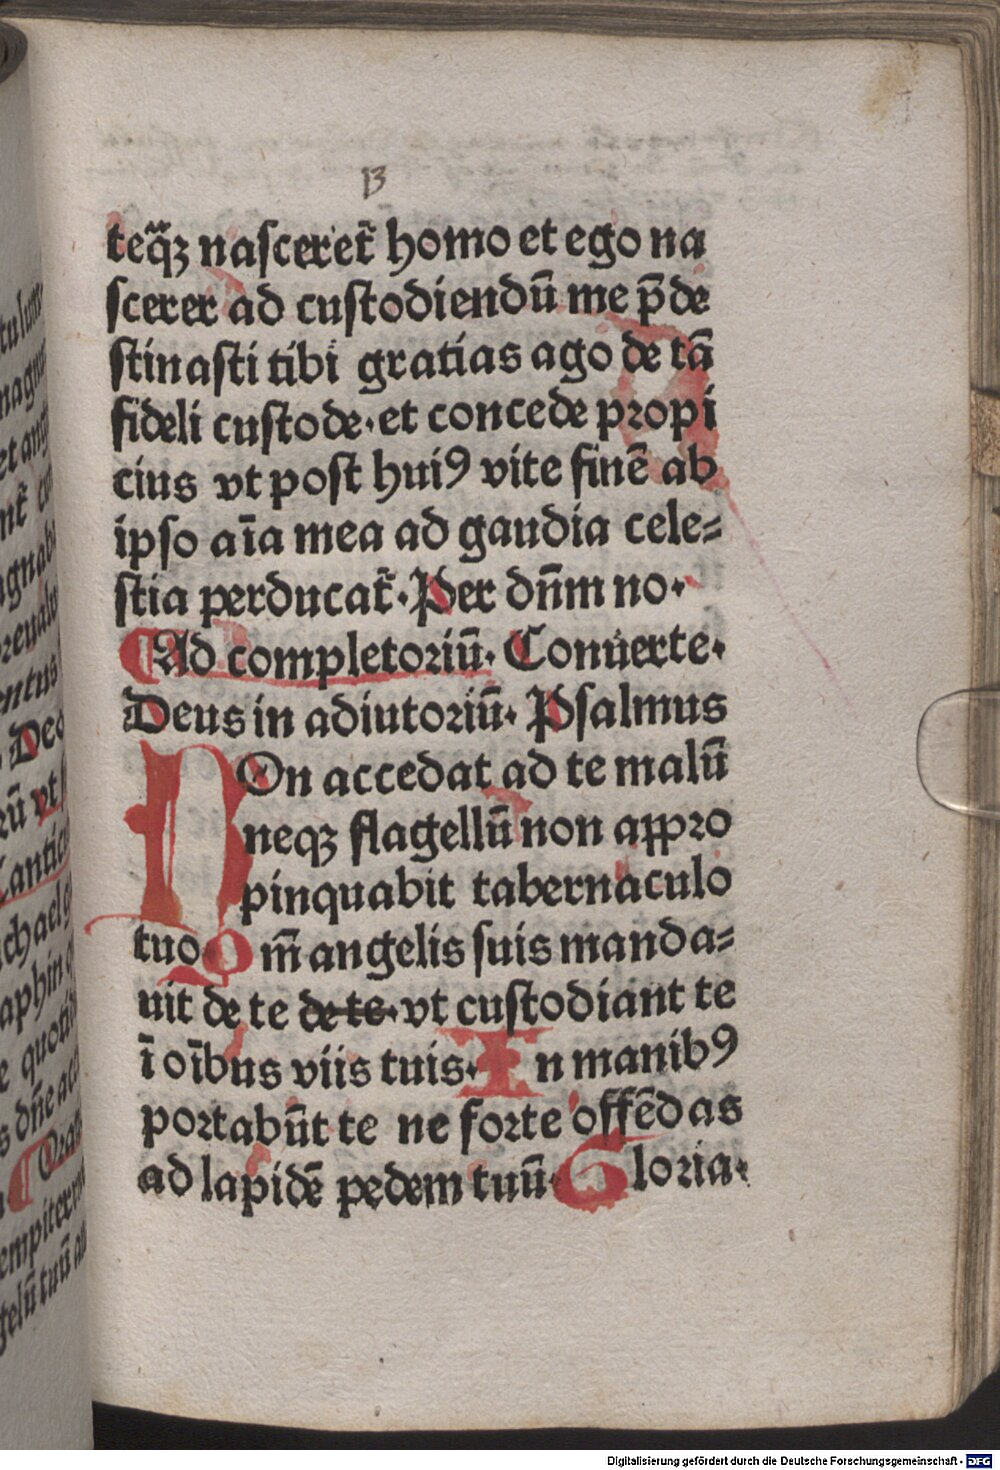 13
teq̃ꝫ naſceret᷑ homo et ego na
ſcerer ad cuſtodiendū me p̄de
ſtinaſti tibi gratias ago de tā
fideli cuſtode·et concede propi
cius vt poſt huiꝰ vite finē ab
ipſo aīa mea ad gaudia cele⸗
ſtia perducat᷑·Per dn̄m no·
¶Ad completoriū· Conuerte·
Deus in adiutoriū· Pſalmus
NOn accedat ad te malū
neqꝫ flagellū non appro
pinquabit tabernaculo
tuo Qm̄ angelis ſuis manda⸗
uit de te de te·vt cuſtodiant te
ī oībus viis tuis·In manibꝰ
portabūt te ne forte offēdas
ad lapidē pedem tuū·Gloria·
Digitalisierung gefördert durch die Deutsche Forschungsgemeinschaft - DFG